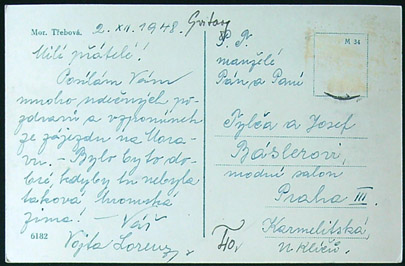 Mor. Třebová.
2. XII. 1948.
Milí přátelé!
Posílám Vám
mnoho srdečných po-
zdravů a vzpomínek
ze zájezdu na Mora-
vu. – Bylo by to do-
bré, kdyby tu nebyla
taková hromská
zima! – Váš
Vojta Lorenz
6182
P. T.
manželé
Pán a Paní
M 34
a Josef
Báslerovi
modní salon
Praha III.
Karmelitská
u klíčů